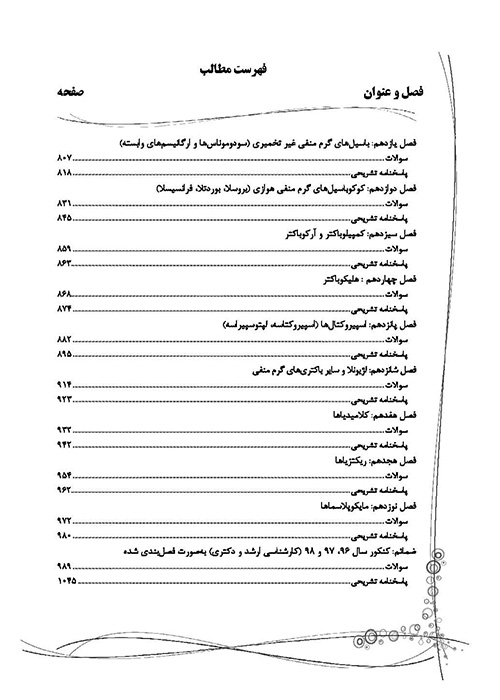 فهرست مطالب
فصل و عنوان صفحه
فصل یازدهم: باسیل‌های گرم منفی غیر تخمیری (سودوموناس‌ها و ارگانیسم‌های وابسته)
سوالات ............ ۸۰۷
پاسخنامه تشریحی ............ ۸۱۸
فصل دوازدهم: کوکوباسیل‌های گرم منفی هوازی (بروسلا، بوردتلا، فرانسیسلا)
سوالات ............ ۸۳۱
پاسخنامه تشریحی ............ ۸۴۵
فصل سیزدهم: کمپیلوباکتر و آرکوباکتر
سوالات ............ ۸۵۹
پاسخنامه تشریحی ............ ۸۶۳
فصل چهاردهم : هلیکوباکتر
سوالات ............ ۸۶۸
پاسخنامه تشریحی ............ ۸۷۴
فصل پانزدهم: اسپیروکتال‌ها (اسپیروکتاسه، لپتوسپیراسه)
سوالات ............ ۸۸۲
پاسخنامه تشریحی ............ ۸۹۵
فصل شانزدهم: لژیونلا و سایر باکتری‌های گرم منفی
سوالات ............ ۹۱۴
پاسخنامه تشریحی ............ ۹۲۳
فصل هفدهم: کلامیدیاها
سوالات ............ ۹۳۲
پاسخنامه تشریحی ............ ۹۴۲
فصل هجدهم: ریکتزیاها
سوالات ............ ۹۵۴
پاسخنامه تشریحی ............ ۹۶۲
فصل نوزدهم: مایکوپلاسماها
سوالات ............ ۹۷۲
پاسخنامه تشریحی ............ ۹۸۰
ضمائم: کنکور سال ۹۶، ۹۷ و ۹۸ (کارشناسی ارشد و دکتری) به‌صورت فصل‌بندی شده
سوالات ............ ۹۸۹
پاسخنامه تشریحی ............ ۱۰۴۵